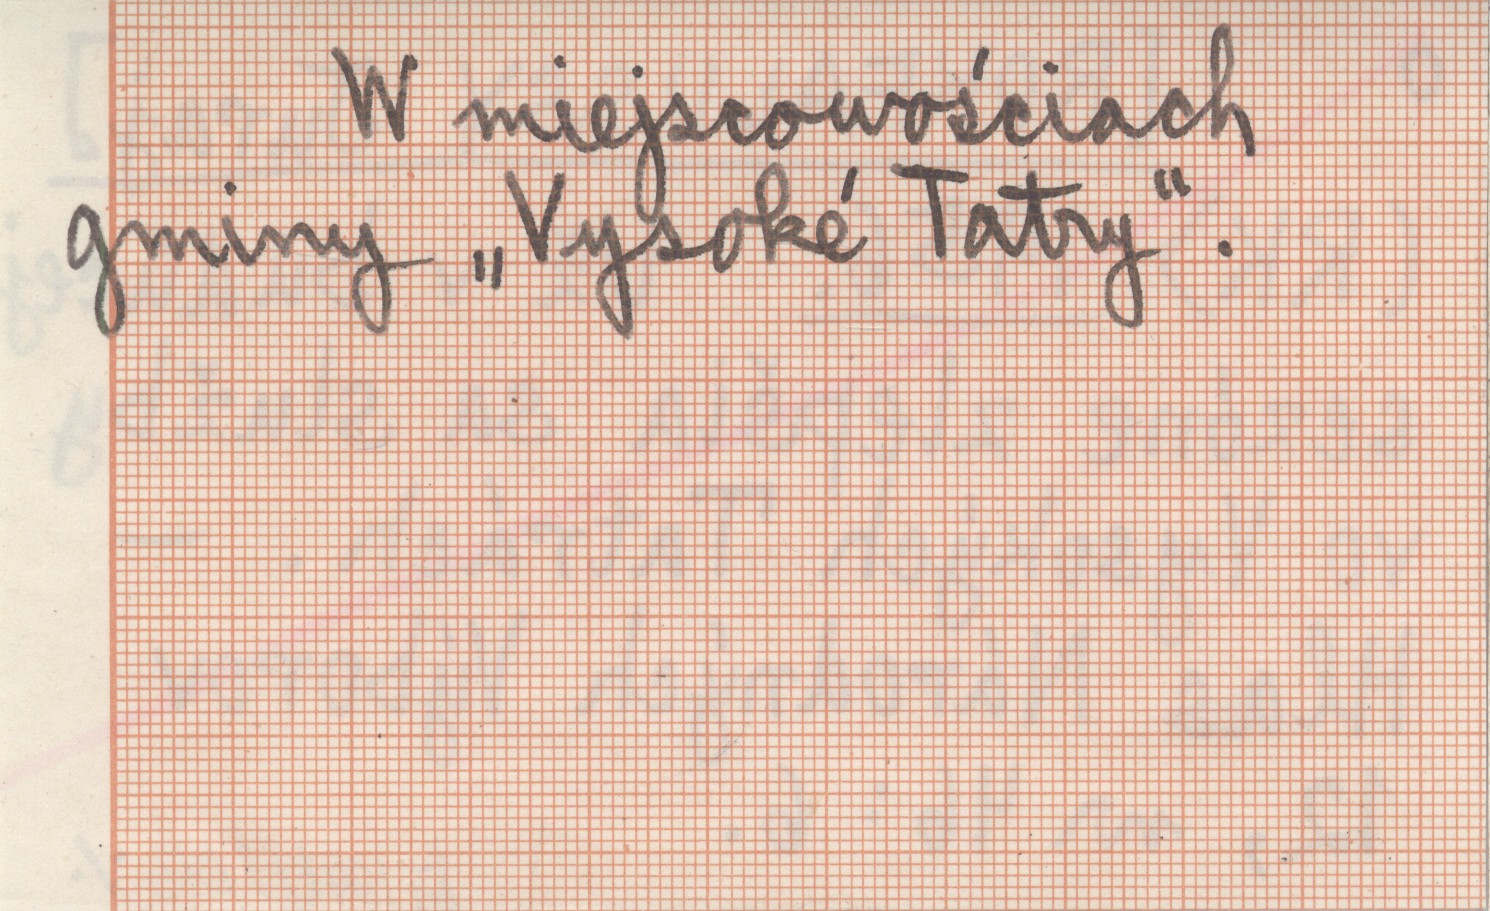 W miejscowościach
gminy „Vysoké Tatry“.